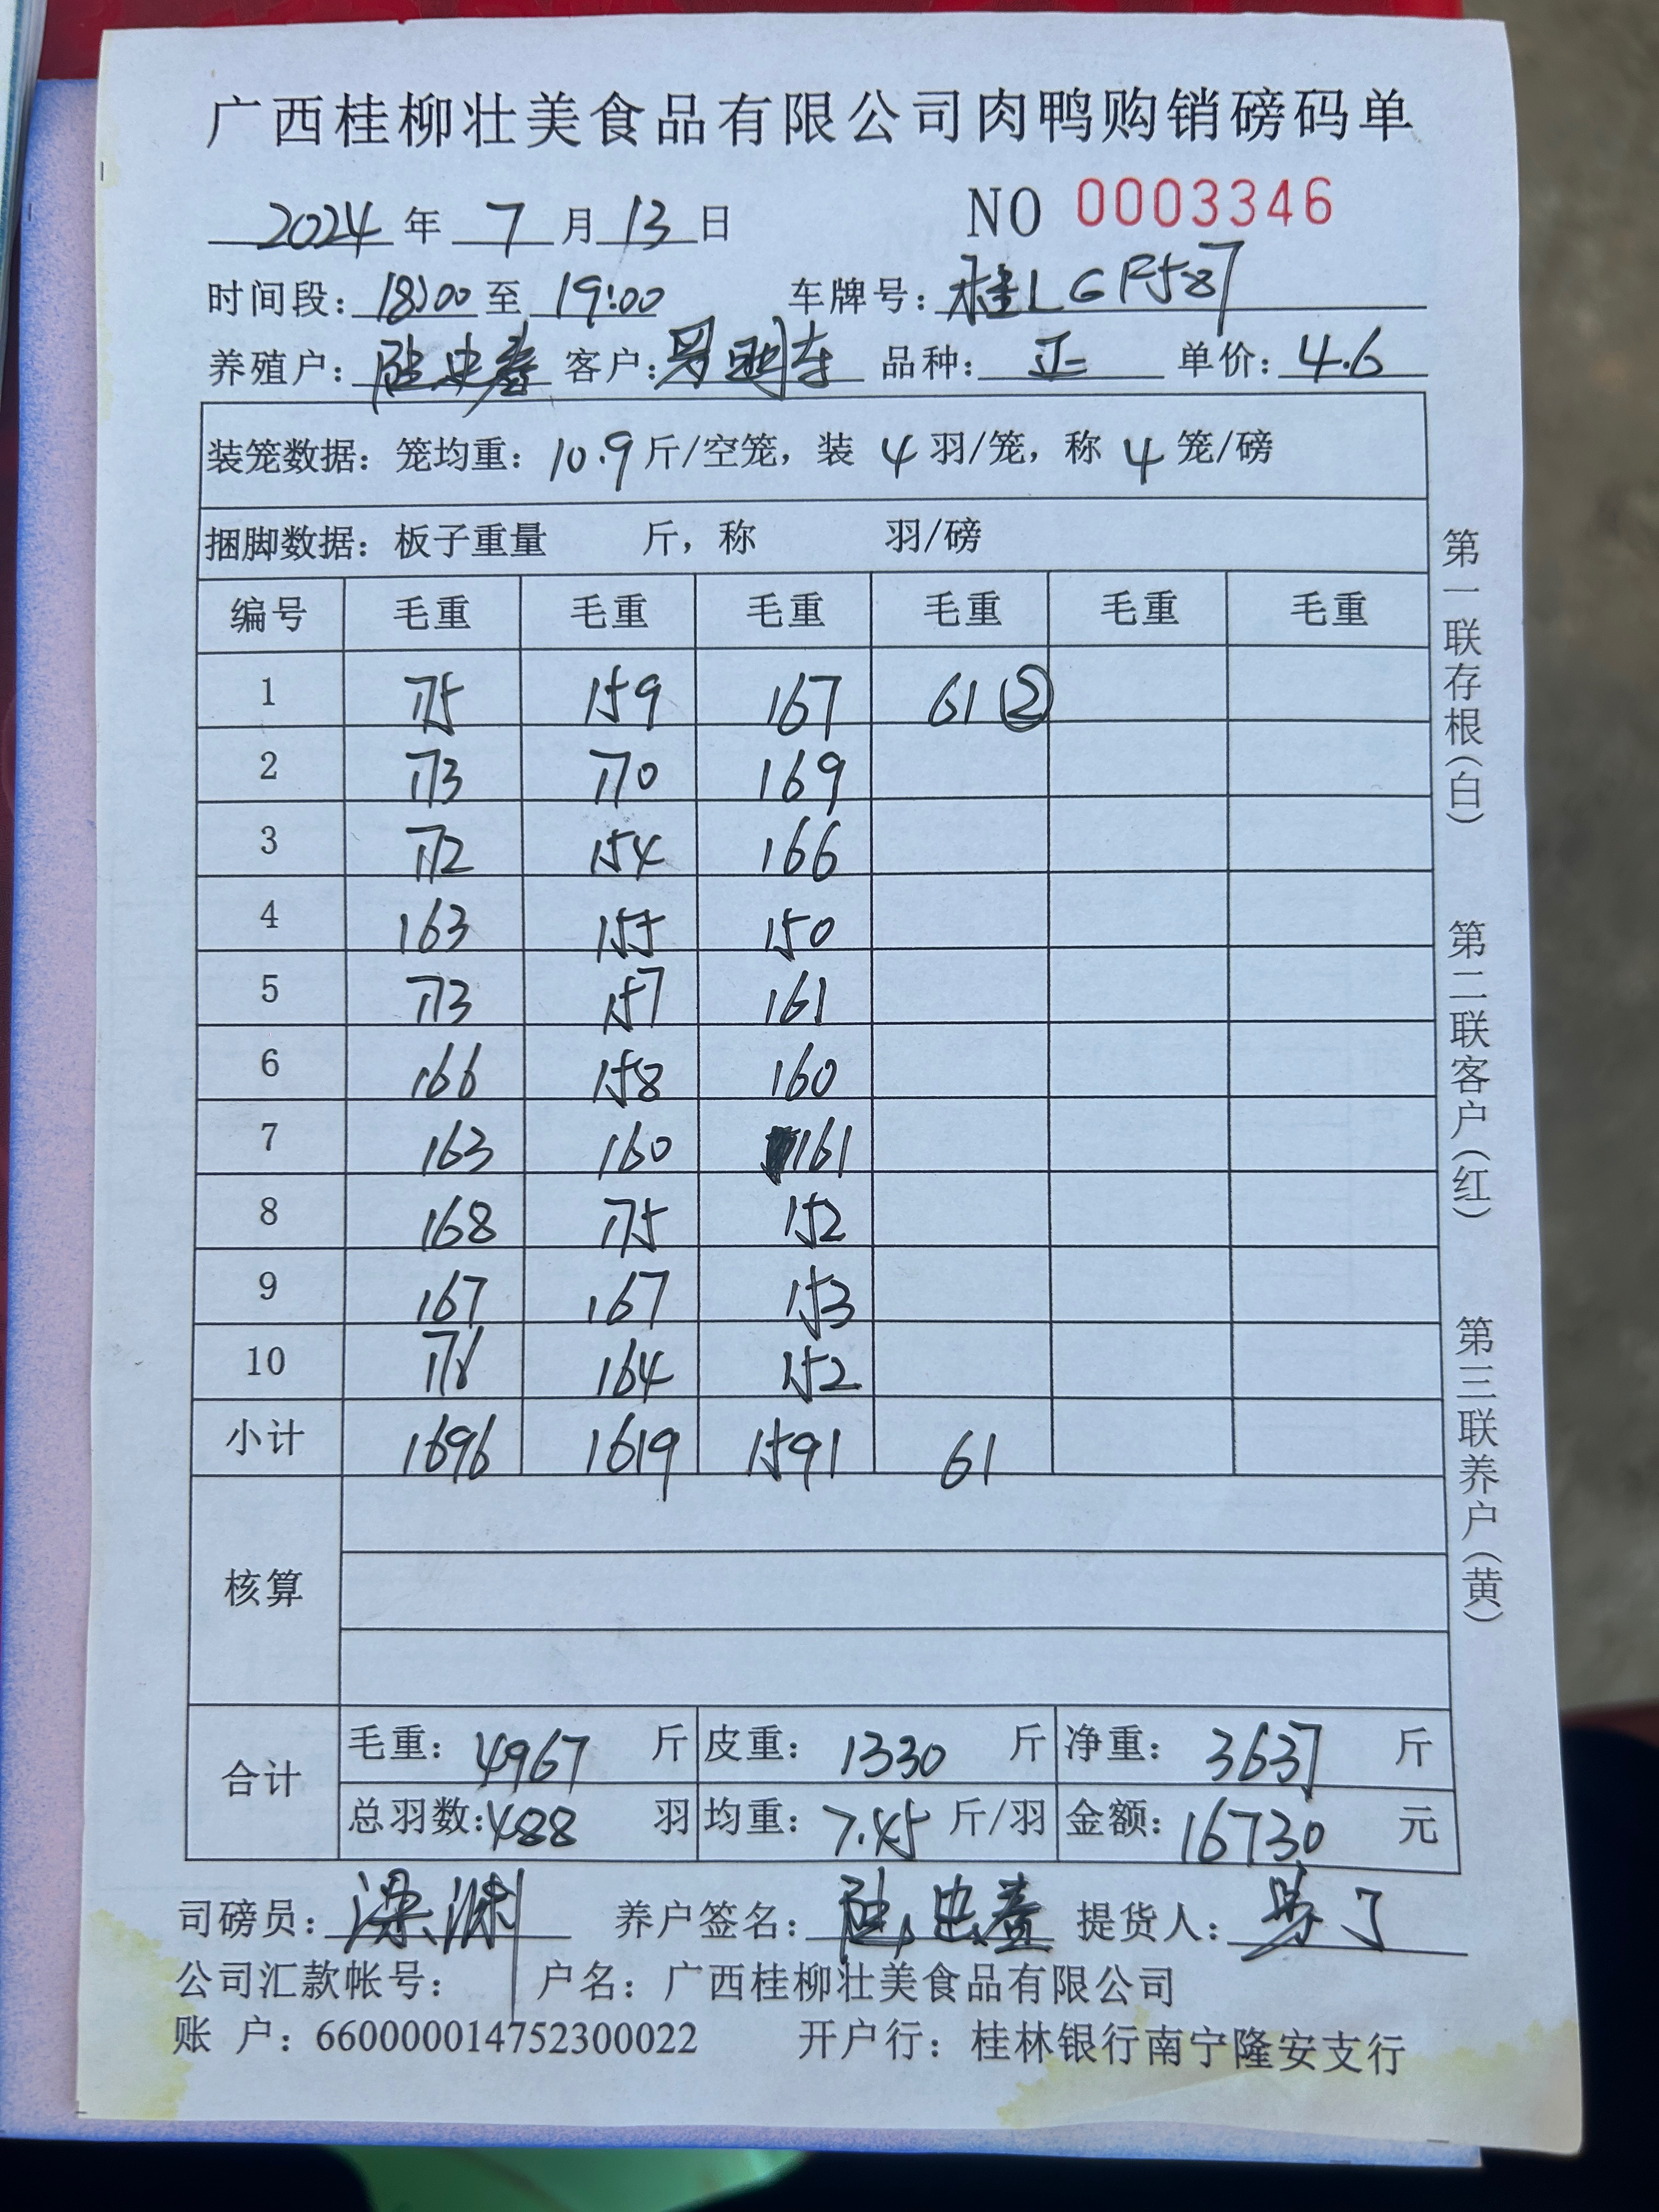 广西桂柳壮美食品有限公司肉鸭购销磅码单
2024 年 7 月 13 日 NO 0003346
时间段: 18:00 至 19:00 车牌号: 桂LGF587
养殖户: 客户: 品种: 正 单价: 4.6
装笼数据: 笼均重: 10.9 斤/空笼, 装 4 羽/笼, 称 4 笼/磅
捆脚数据: 板子重量 斤, 称 羽/磅
编号 毛重 毛重 毛重 毛重 毛重 毛重
1 175 159 167 61 ②
2 173 170 169
3 172 154 166
4 163 155 150
5 173 157 161
6 166 158 160
7 163 160 161
8 168 175 152
9 167 167 153
10 176 164 152
小计 1696 1619 1591 61
核算
合计 毛重: 4967 斤 皮重: 1330 斤 净重: 3637 斤
总羽数: 488 羽 均重: 7.45 斤/羽 金额: 16730 元
司磅员: 养户签名: 提货人:
公司汇款帐号: 户名: 广西桂柳壮美食品有限公司
账 户: 660000014752300022 开户行: 桂林银行南宁隆安支行
第一联存根(白) 第二联客户(红) 第三联养户(黄)